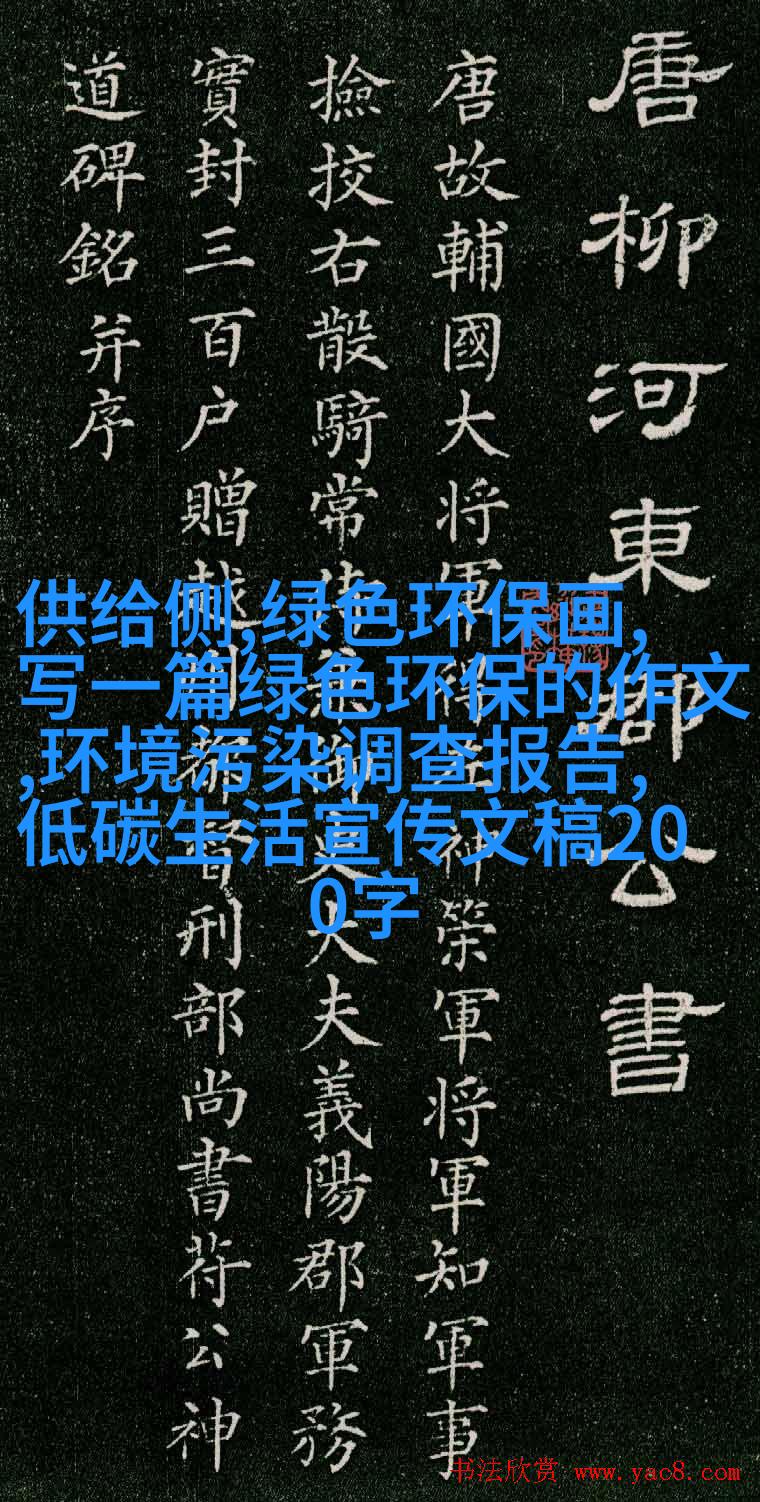 唐柳河東郡公書
唐故輔國大将軍左神筞軍将軍知軍事
撿挍右散騎常侍兼御史大夫義陽郡軍務
實封三百户贈越州都督刑部尚書苻公神
道碑銘并序
供给侧,绿色环保画,
写一篇绿色环保的作文
,环境污染调查报告,
低碳生活宣传文稿20
0字
书法欣赏 www.yac8.com